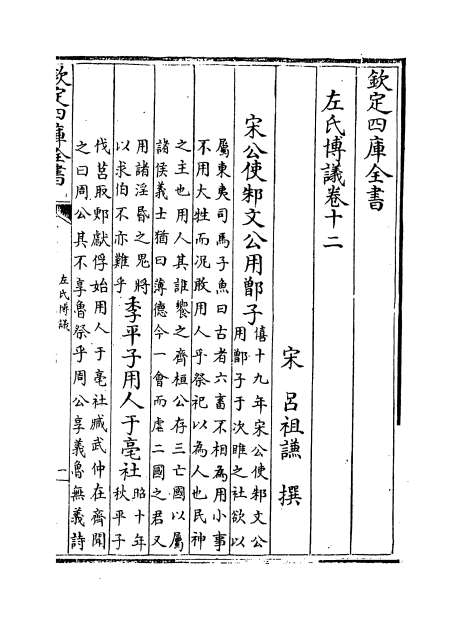 欽定四庫全書
左氏博議卷十二
宋 呂祖謙 撰
宋公使邾文公用鄫子僖十九年宋公使邾文公
用鄫子于次睢之社欲以
屬東夷司馬子魚曰古者六畜不相為用小事
不用大牲而况敢用人乎祭祀以為人也民神
之主也用人其誰饗之齊桓公存三亡國以屬
諸侯義士猶曰薄德今一會而虐二國之君又
用諸淫昬之鬼將
以求伯不亦難乎季平子用人于亳社昭十年
秋平子
伐莒取郠獻俘始用人于亳社臧武仲在齊聞
之曰周公其不享魯祭乎周公享義魯無義詩
欽定四庫全書
左氏博議
一